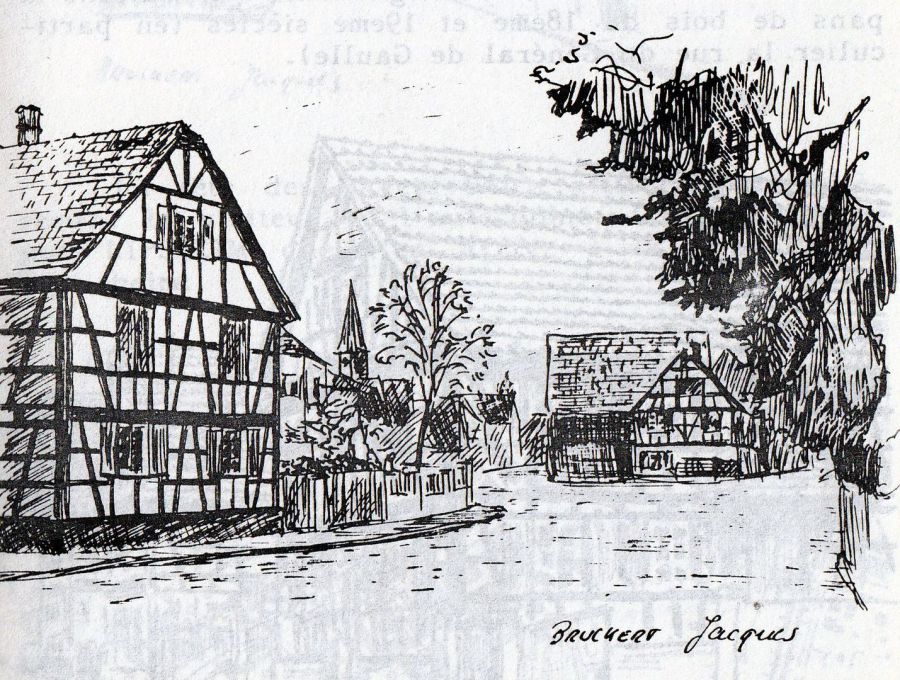 pans de bois du 18eme et 19eme siècles (en parti-
culier la rue du Général de Gaulle).
BRUCKERT Jacques